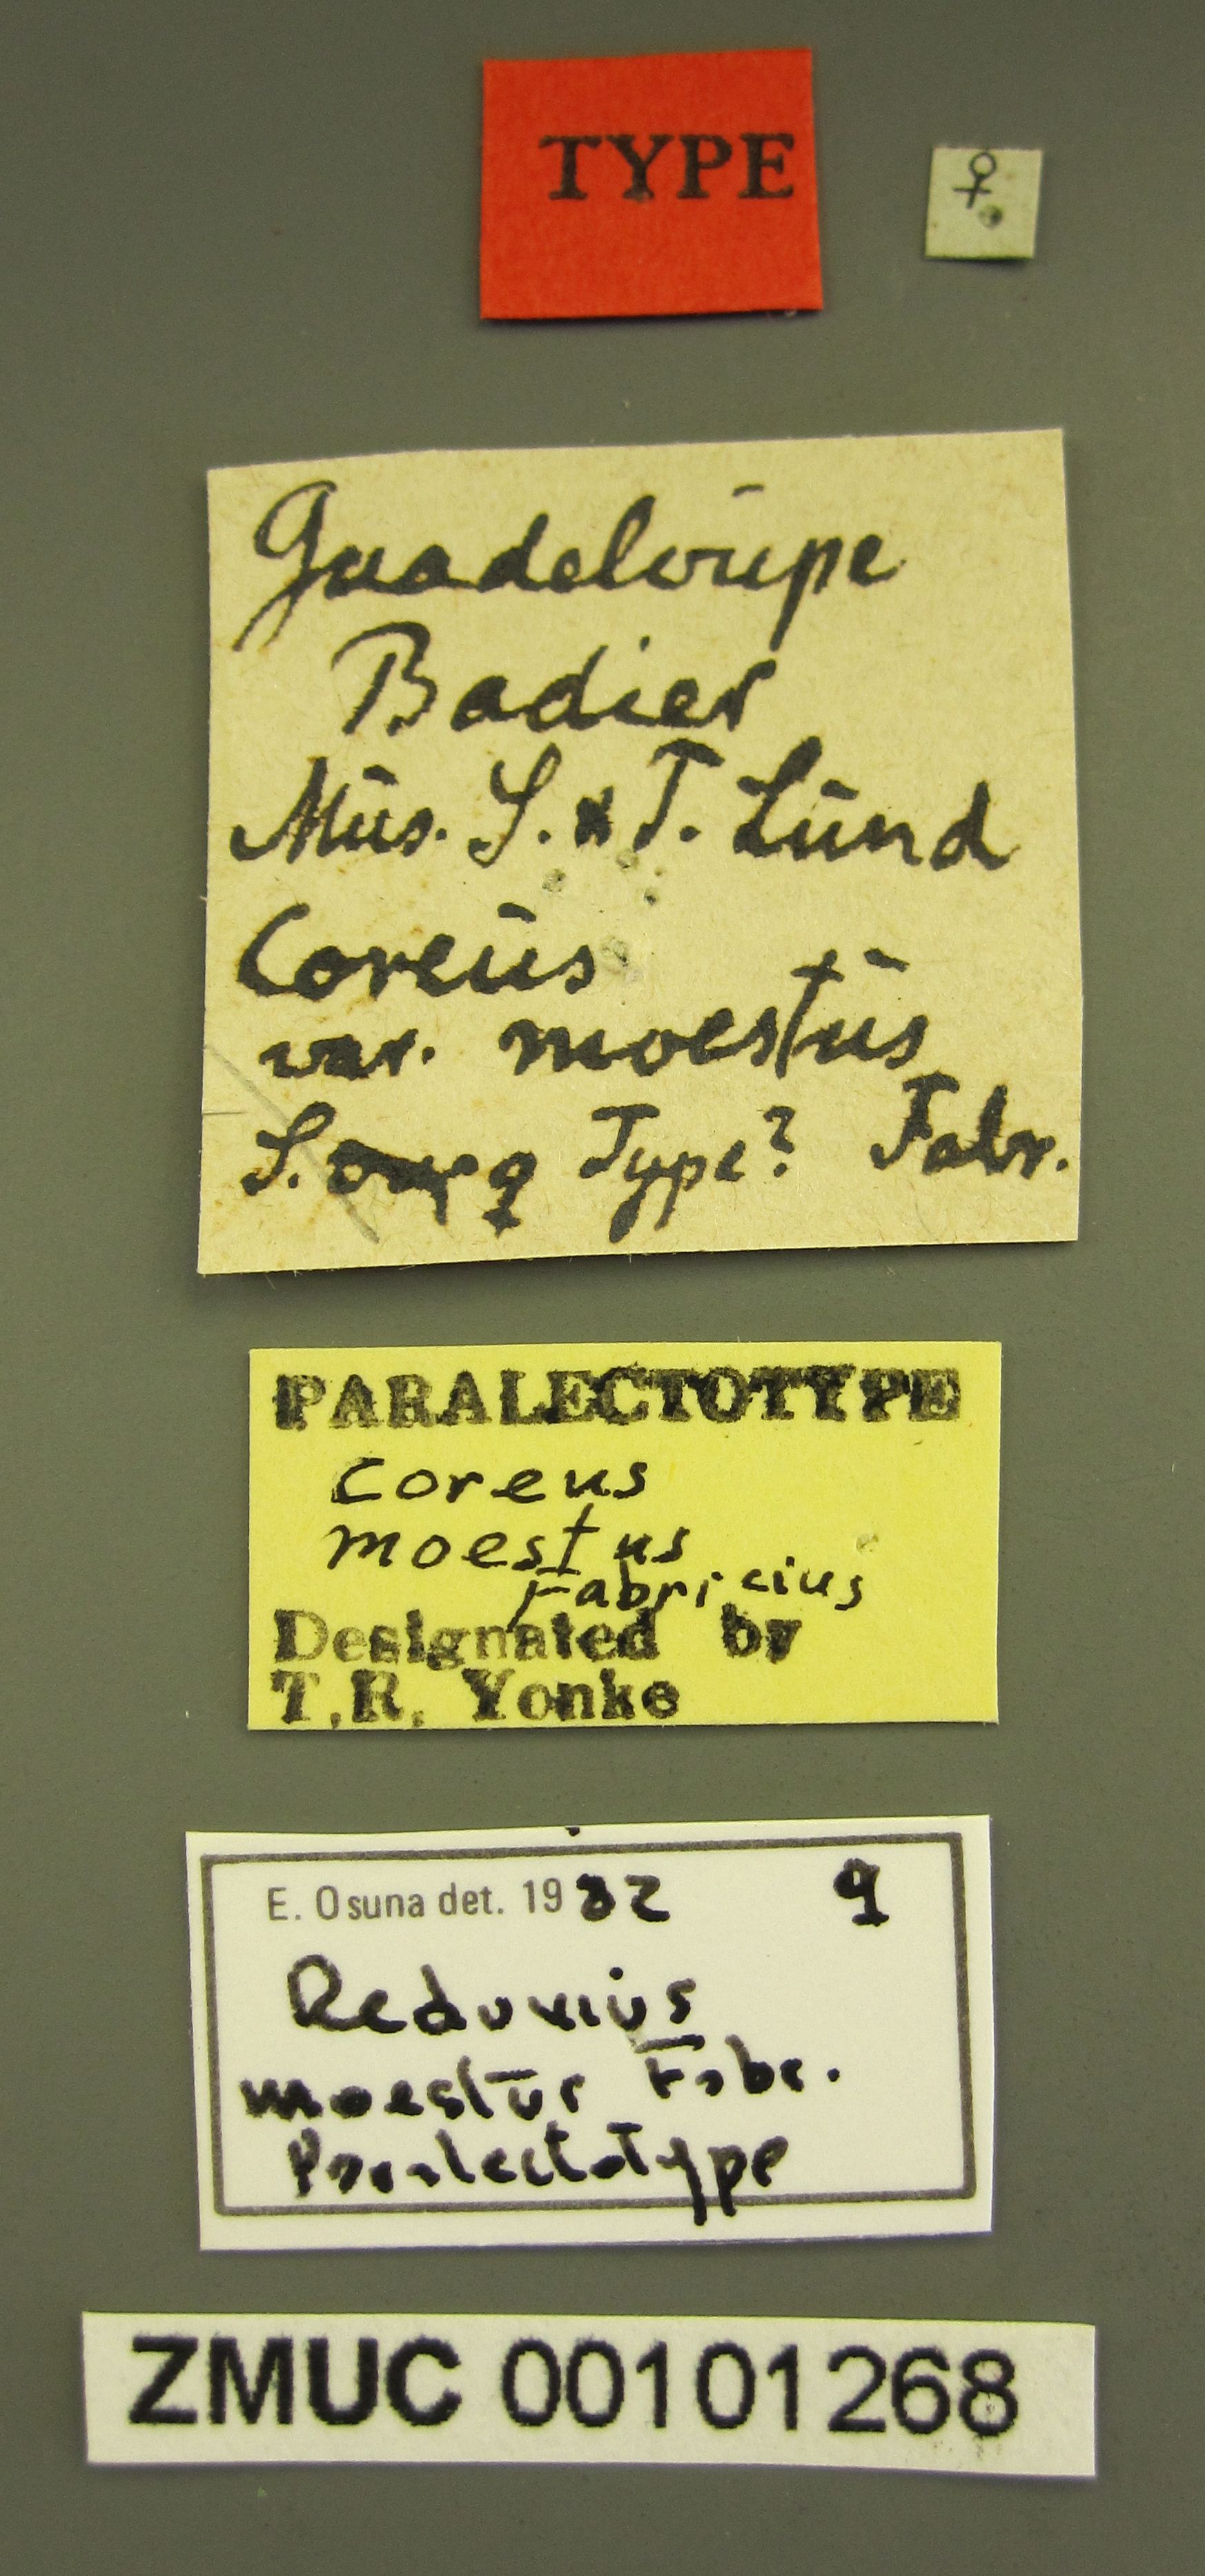 TYPE
♀
Guadeloupe
Badier
Mus. S. & T. Lund
Coreus
var. moestus
S. ♀ Type? Fabr.
PARALECTOTYPE
Coreus
moestus
Fabricius
Designated by
T.R. Yonke
E. Osuna det. 1982 ♀
Reduvius
moestus Fabr.
Paralectotype
ZMUC 00101268